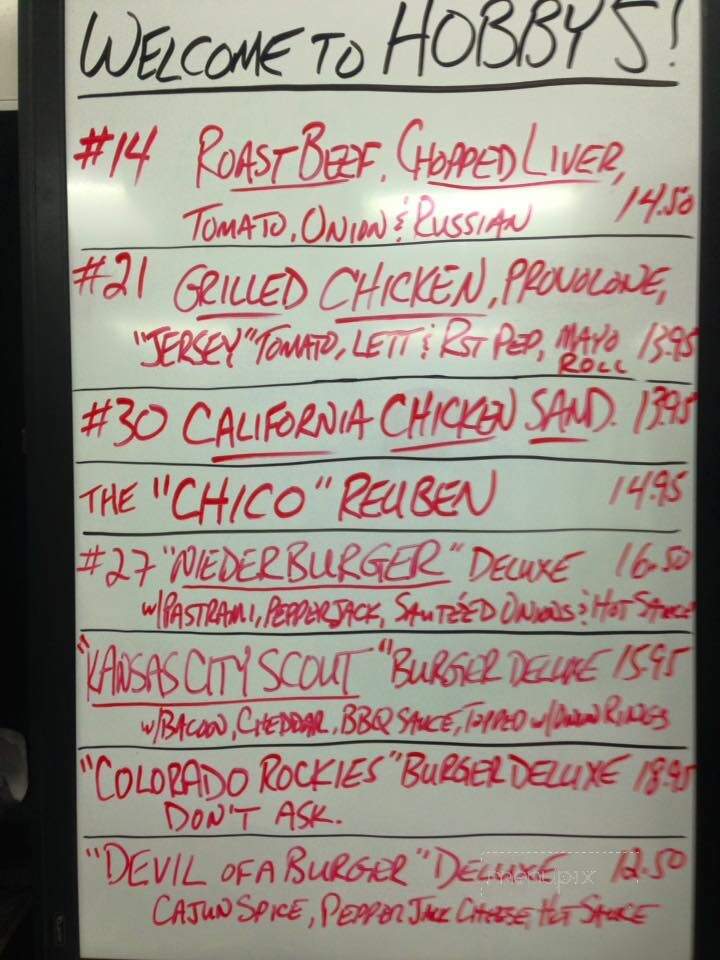 WELCOME TO HOBBY'S!
#14 ROAST BEEF, CHOPPED LIVER,
TOMATO, ONION & RUSSIAN 14.50
#21 GRILLED CHICKEN, PROVOLONE,
"JERSEY" TOMATO, LETT & RST PEP, MAYO 13.95
ROLL
#30 CALIFORNIA CHICKEN SAND. 13.95
THE "CHICO" REUBEN 14.95
#27 "NIEDERBURGER" DELUXE 16.50
w/PASTRAMI, PEPPERJACK, SAUTÉED ONIONS & HOT SAUCE
"KANSAS CITY SCOUT" BURGER DELUXE 15.95
w/BACON, CHEDDAR, BBQ SAUCE, TOPPED w/ONION RINGS
"COLORADO ROCKIES" BURGER DELUXE 18.95
DON'T ASK.
"DEVIL OF A BURGER" DELUXE 12.50
menupix
CAJUN SPICE, PEPPER JACK CHEESE, HOT SAUCE